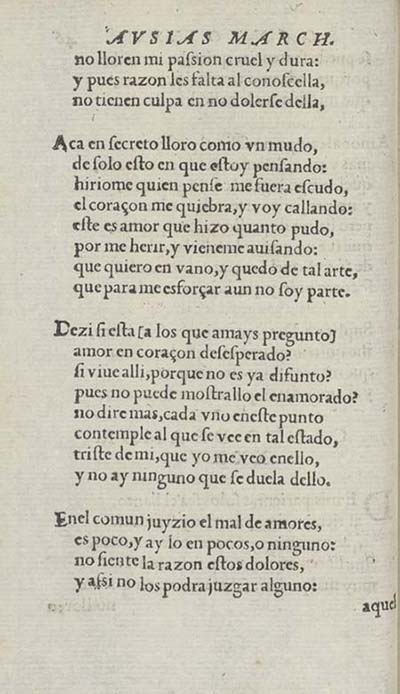 AVSIAS MARCH.
no lloren mi paſsion cruel y dura:
y pues razon les falta al conoſcella,
no tienen culpa en no dolerſe della,
Aca en ſecreto lloro como vn mudo,
de ſolo eſto en que eſtoy penſando:
hiriome quien penſe me fuera eſcudo,
el coraçon me quiebra, y voy callando:
eſte es amor que hizo quanto pudo,
por me herir, y vieneme auiſando:
que quiero en vano, y quedo de tal arte,
que para me esforçar aun no ſoy parte.
Dezi ſi eſta [a los que amays pregunto]
amor en coraçon deſeſperado?
ſi viue alli, porque no es ya difunto?
pues no puede moſtrallo el enamorado?
no dire mas, cada vno eneſte punto
contemple al que ſe vee en tal eſtado,
triſte de mi, que yo me veo enello,
y no ay ninguno que ſe duela dello.
Enel comun juyzio el mal de amores,
es poco, y ay lo en pocos, o ninguno:
no ſiente la razon eſtos dolores,
y aſsi no los podra juzgar alguno:
aquel